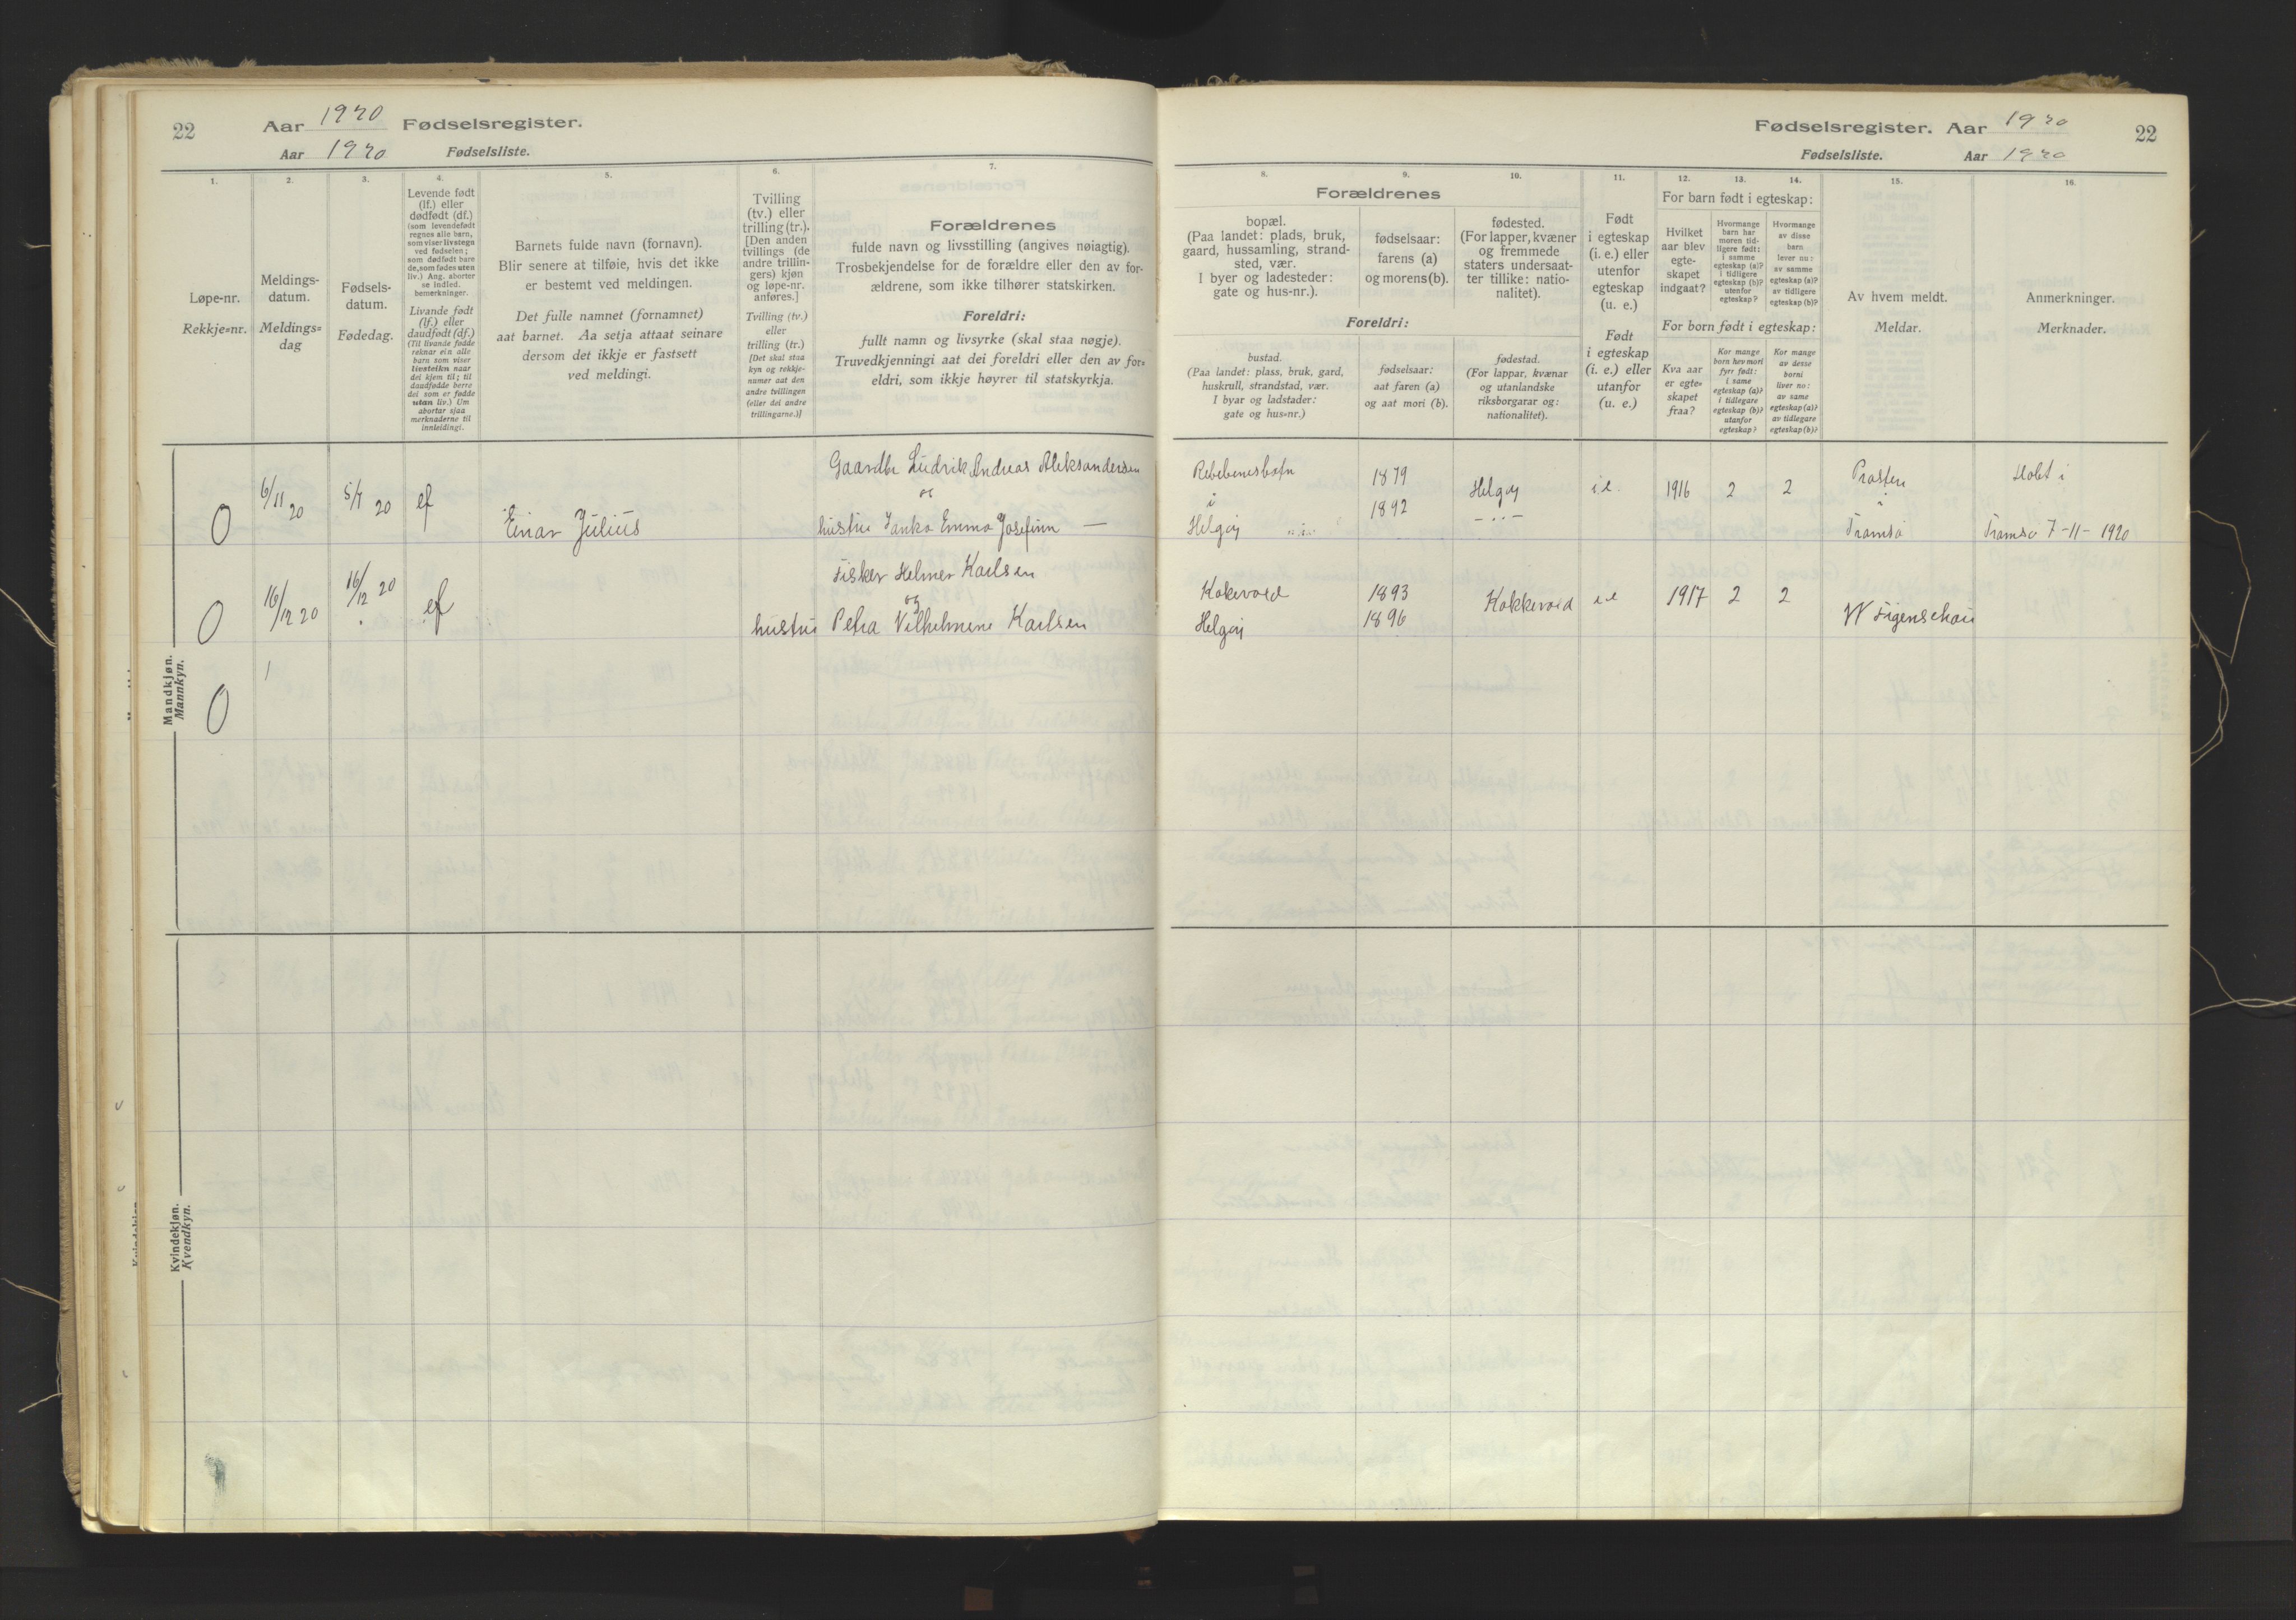 22
Aar 1920 Fødselsregister.
Aar 1920 Fødselsliste.
1.
2.
3.
4.
5.
6.
7.
Løpe-nr.
Rekkje=nr.
Meldings-
datum.
Meldings=
dag
Fødsels-
datum.
Fødedag.
Levende født
(lf.) eller
dødfødt (df.)
(som levendefødt
regnes alle barn,
som viser livstegn
ved fødselen;
som dødfødt bare
de, som fødes uten
liv.) Ang. aborter
se indled.
bemerkninger.
Livande født
(lf.) eller
daudfødt (df.)
(Til livande fødde
reknar ein alle
barn som viser
livsteikn naar
dei kjem til; til
daudfødde berre
dei som er fødde
utan liv.) Um
abortar sjaa
merknaderne til
innleidingi.
Barnets fulde navn (fornavn).
Blir senere at tilføie, hvis det ikke
er bestemt ved meldingen.
Det fulle namnet (fornamnet)
aat barnet. Aa setja attaat seinare
dersom det ikkje er fastsett
ved meldingi.
Tvilling
(tv.) eller
trilling (tr.).
[Den anden
tvillings (de
andre trillin-
gers) kjøn
og løpe-nr.
anføres.]
Tvilling (tv.)
eller
trilling (tr.)
[Det skal staa
kyn og rekkje-
numer aat den
andre tvillingen
(eller dei andre
trillingarne.)]
Forældrenes
fulde navn og livsstilling (angives nøiagtig).
Trosbekjendelse for de forældre eller den av for-
ældrene, som ikke tilhører statskirken.
Foreldri:
fullt namn og livsyrke (skal staa nøgje).
Truvedkjenningi aat dei foreldri eller den av for=
eldri, som ikkje høyrer til statskyrkja.
Mandkjøn.
Mannkyn.
0
6/11 20
20
ef
Einar Julius
Gaardbr Ludrik Andreas Aleksandersen
og
hustru Emma Josefine —
0
16/12 20
16/12 20
ef
Fisker Helmer Karlsen
og
hustru Petra Vilhelmine Karlsen
0
Kvindekjøn.
Kvendkyn.
Fødselsregister. Aar 1920
22
Fødselsliste. Aar 1920
8.
9.
10.
11.
12.
13.
14.
15.
16.
Forældrenes
bopæl.
(Paa landet: plads, bruk,
gaard, hussamling, strand-
sted, vær.
I byer og ladesteder:
gate og hus-nr.).
fødselsaar:
farens (a)
og morens (b).
fødested.
(For lapper, kvæner
og fremmede
staters undersaat-
ter tillike: natio-
nalitet).
Foreldri:
bustad.
(Paa landet: plass, bruk, gard,
huskrull, strandstad, vær.
I byar og ladstader:
gate og hus=nr.)
fødselsaar:
aat faren (a)
og aat mori (b).
fødestad.
(For lappar, kvænar
og utanlandske
riksborgarar og:
nationalitet).
Født
i egteskap
(i. e.) eller
utenfor
egteskap
(u. e.)
Født
i egteskap
(i. e.) eller
utanfor
(u. e.)
For barn født i egteskap:
Hvilket
aar blev
egte-
skapet
indgaat?
Hvormange
barn har
moren tid-
ligere født:
i samme
egteskap (a)?
i tidligere
egteskap (b)?
utenfor
egteskap?
Hvormange
av disse
barn
lever nu:
av samme
egteskap (a)?
av tidligere
egteskap (b)?
For born født i egteskap:
Kva aar
er egte=
skapet
fraa?
Kor mange
born hev mori
fyrr født:
i same
egteskap (a)?
i tidlegare
egteskap (b)?
utanfor
egteskap?
Kor mange
av desse
borni
liver no:
av same
egteskap (a)?
av tidlegare
egteskap (b)?
Av hvem meldt.
Meldar.
Anmerkninger.
Merknader.
i
Helgøy
1879
1892
Helgøy
—"—
i.e.
1916
2
2
Prosten
i
Tromsø
Døbt i
Tromsø 7-11-1920
Kokevold
Helgøy
1893
1896
Kokkevold
i e
1917
2
2
W Figenschau